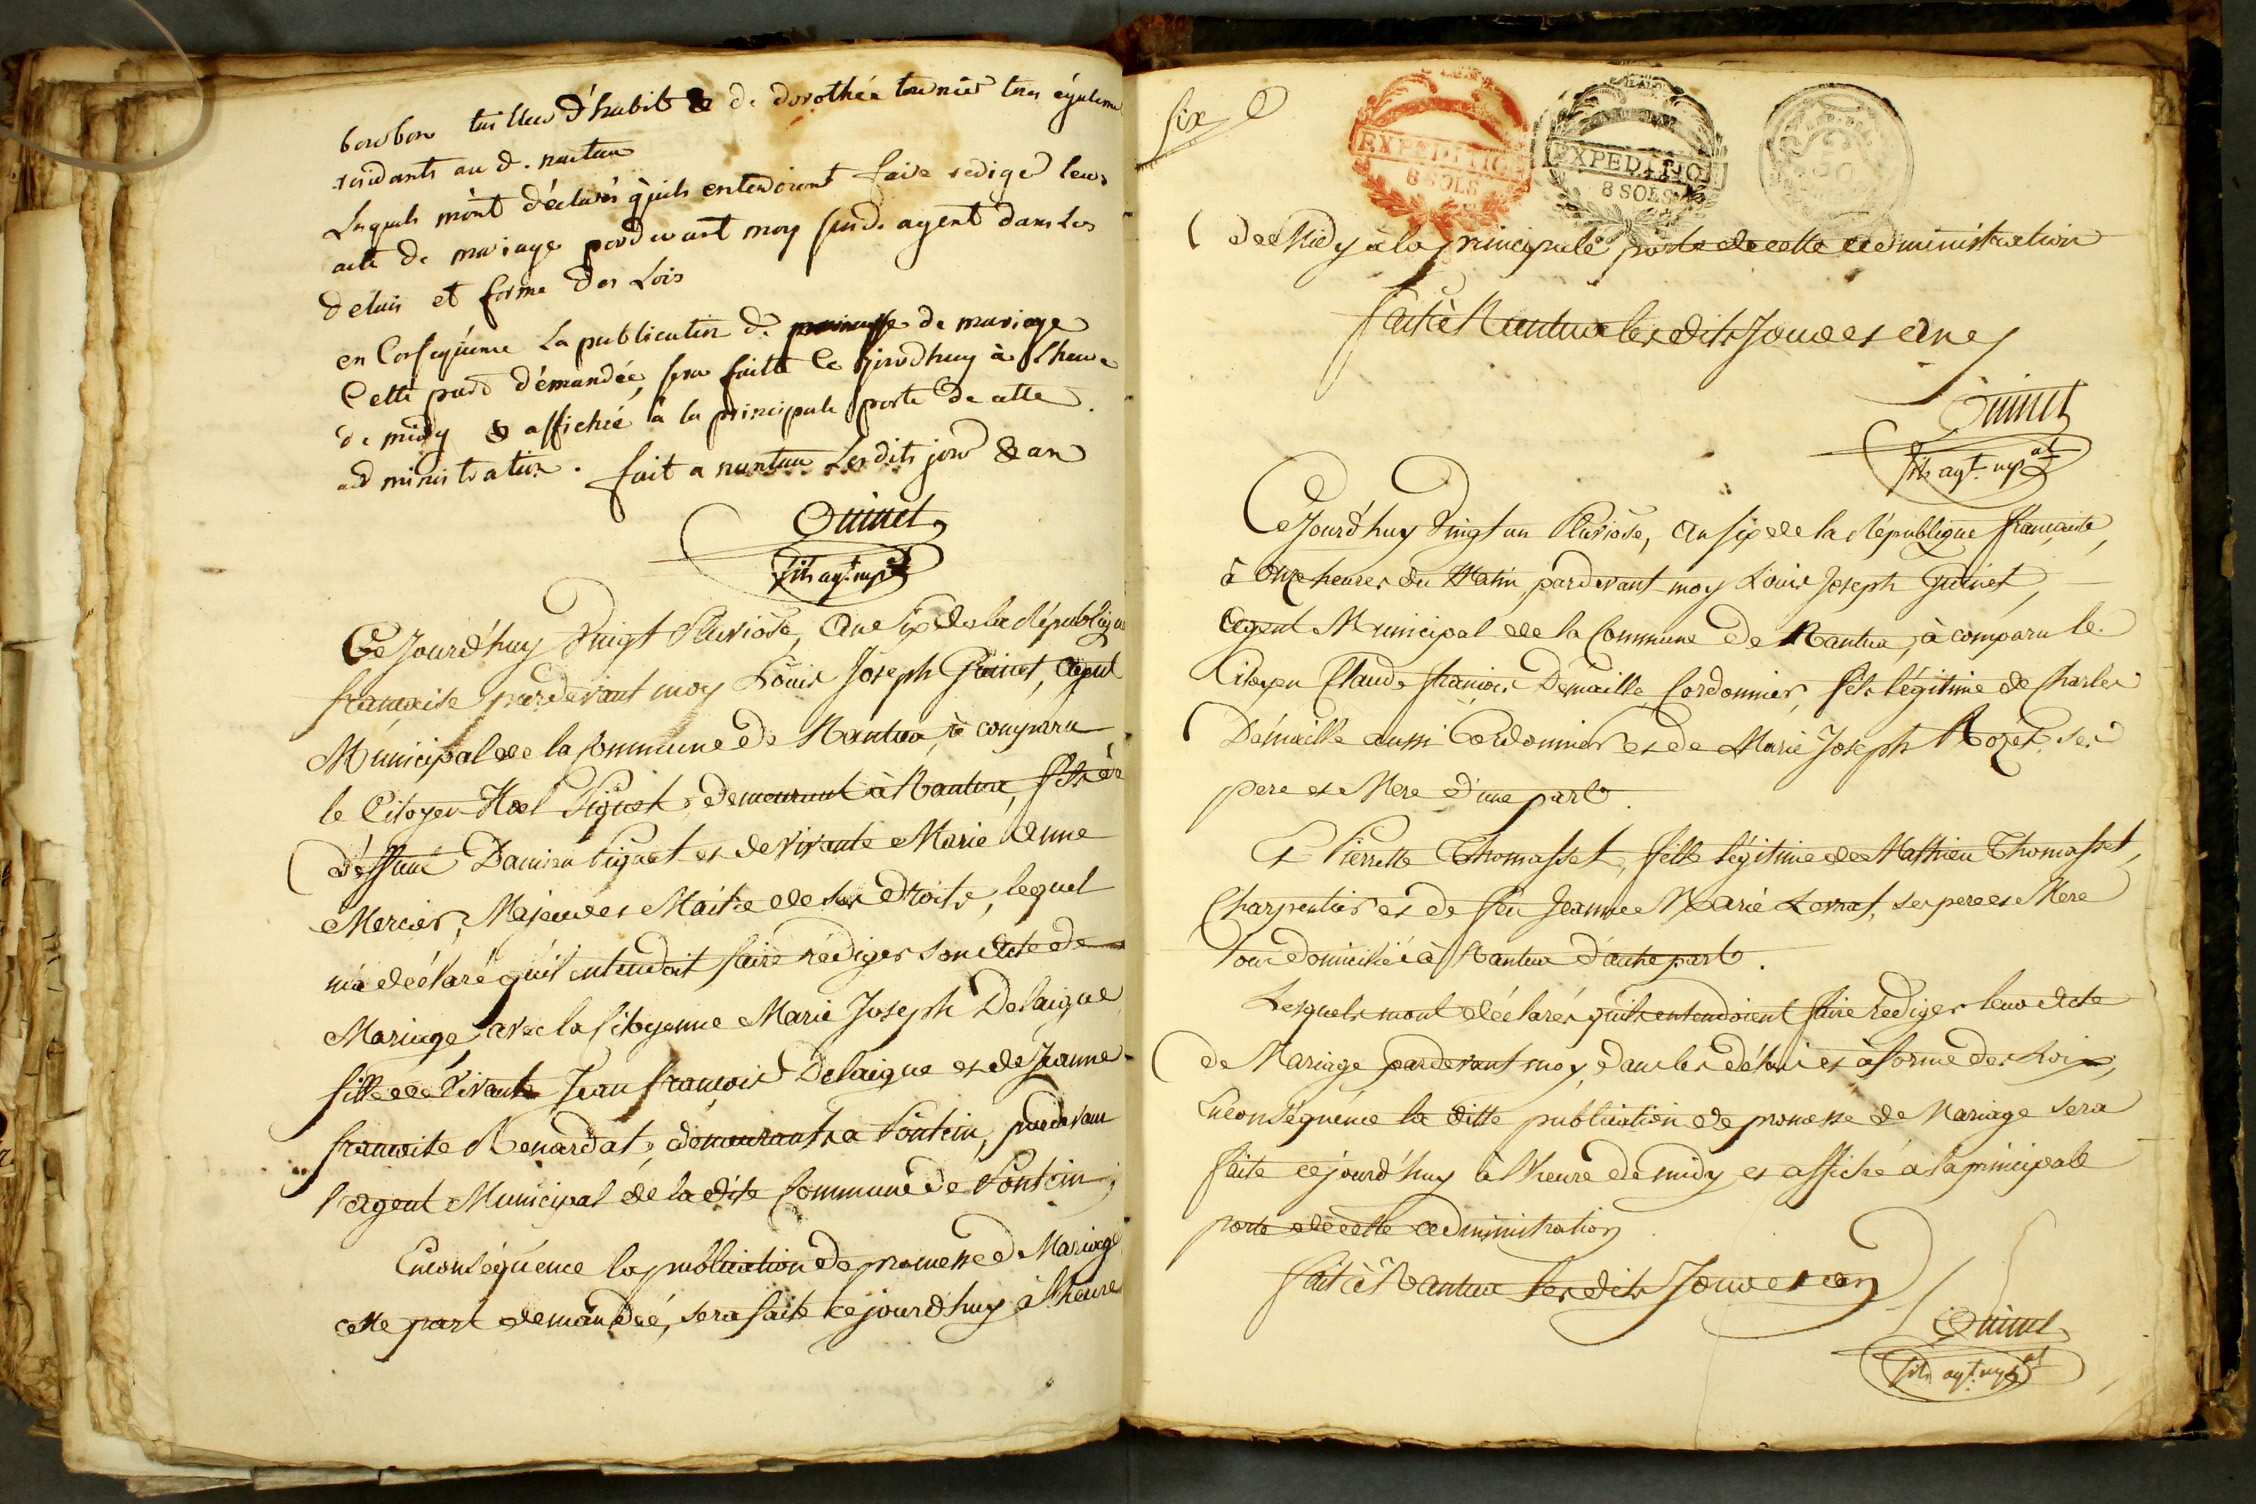 bourbon tailleur d'habit & de dorothée tournier tous égaleme
residants au d. nantua
Lesquels m'ont déclarés qu'ils entendoient faire rediger leur
acte de mariage pardevant moy susd. agent dans les
delais et forme des Lois
en Conséquence La publication de promesse de mariage
Cette part démandée, sera faitte Ce jourdhuy à Lheure
de midy & affichée à la principale porte de cette
administration. fait a nantua Lesdits jour & an
Quinet
fils agt. mpal
Ce Jourd'huy Vingt Pluviose, an Six de la Républiqu
françoise pardevant moy Louis Joseph Quinet, agent
Municipal de la Commune de Nantua, à comparu
le Citoyen Noel Piquet, demeurant à Nantua, fils de
déffunt Damien Piquet et de vivante Marie Anne
Mercier, Majeur et Maitre de ses droits, lequel
m'a déclaré qu'il entendoit faire rédiger son Acte de
Mariage, avec la Citoyenne Marie Joseph Delaigue
fille de vivants Jean françois Delaigue et de Jeanne
françoise Renardat, demeurants a Poncin, pardevant
l'agent Municipal de la dite Commune de Poncin;
En conséquence la publication de promesse de Mariage
cette part demandée, sera faite ce jourd'huy à l'heure
six
EXPEDITION
8 SOLS
EXPEDITION
8 SOLS
50
de Midy à la principale porte de cette administration
fait à Nantua les dits Jour et an
Quinet
fils agt. mpal
Ce Jourd'huy Vingt un Pluviose, an six de la République françoise,
à onze heures du Matin, pardevant moy Louis Joseph Quinet,
agent Municipal de la Commune de Nantua, à comparu le
Citoyen Claude françois Démaille Cordonnier, fils légitime de Charles
Démaille aussi Cordonnier et de Marie Joseph Rozet, ses
pere et Mere d'une part.
Et Pierrette Thomasset, fille légitime de Mathieu Thomasset,
Charpentier et de feu Jeanne Marie, ses pere et Mere
tous domiciliés à Nantua d'autre part.
Lesquels m'ont déclarés qu'ils entendoient faire rediger leur Acte
de Mariage pardevant moy, dans les délais et à forme des Loix,
En conséquence la ditte publication de promesse de Mariage sera
faite ce jourd'huy à l'heure de midy et affiché à la principale
porte de cette administration
fait à Nantua les dits Jour et an
Quinet
fils agt. mpal